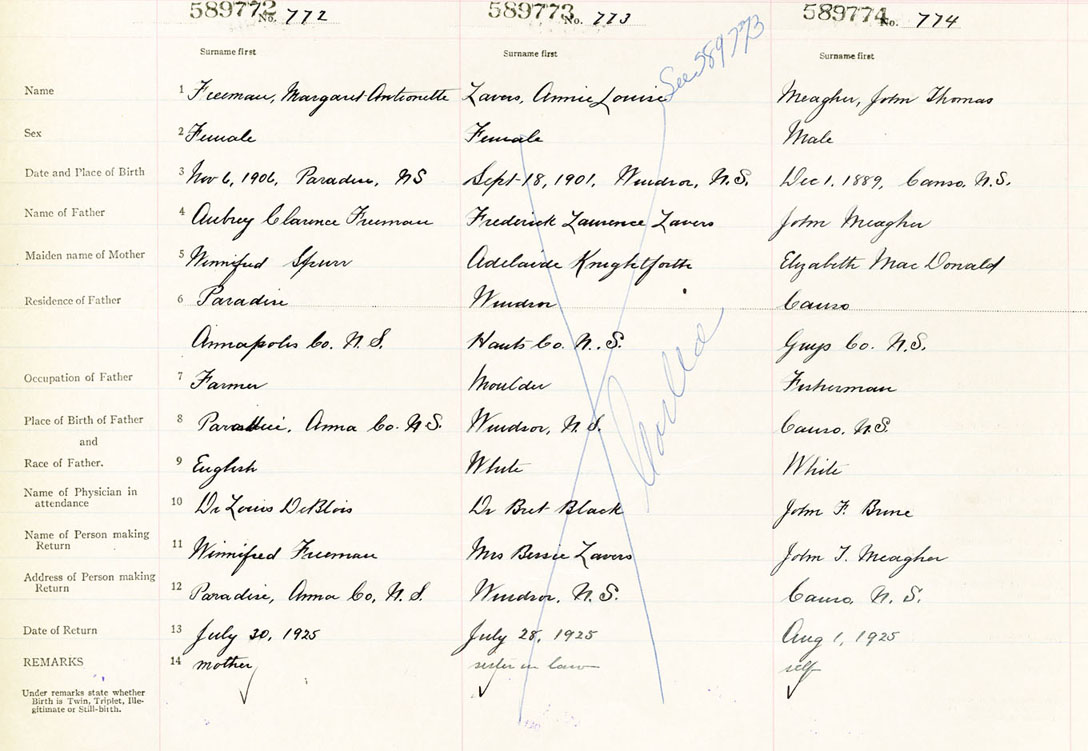 589772 No. 772 589773 No. 773 589774 No. 774
See 589773
Surname first Surname first Surname first
Name 1 Freeman, Margaret Antionette Zavers, Annie Louise Meagher, John Thomas
Sex 2 Female Female Male
Date and Place of Birth 3 Nov 6, 1906, Paradise, NS Sept 18, 1901, Windsor, N.S. Dec 1, 1889, Canso, N.S.
Name of Father 4 Aubrey Clarence Freeman Frederick Laurence Zavers John Meagher
Maiden name of Mother 5 Winnifred Spurr Adelaide Elizabeth Mac Donald
Residence of Father 6 Paradise Windsor Canso
Annapolis Co. N.S. Hants Co. N.S. Guys Co. N.S.
Occupation of Father 7 Farmer Moulder Fisherman
Place of Birth of Father 8 Paradise, Anna Co. N.S. Windsor, N.S. Canso, N.S.
and
Race of Father. 9 English White White
Name of Physician in
attendance 10 Dr Louis DeBlois Dr Bret Black John F.
Name of Person making
Return 11 Winnifred Freeman Mrs Bessie Zavers John T. Meagher
Address of Person making
Return 12 Paradise, Anna Co, N.S. Windsor, N.S. Canso, N.S.
Date of Return 13 July 30, 1925 July 28, 1925 Aug 1, 1925
REMARKS 14 mother sister in law self
Under remarks state whether
Birth is Twin, Triplet, Ille-
gitimate or Still-birth.